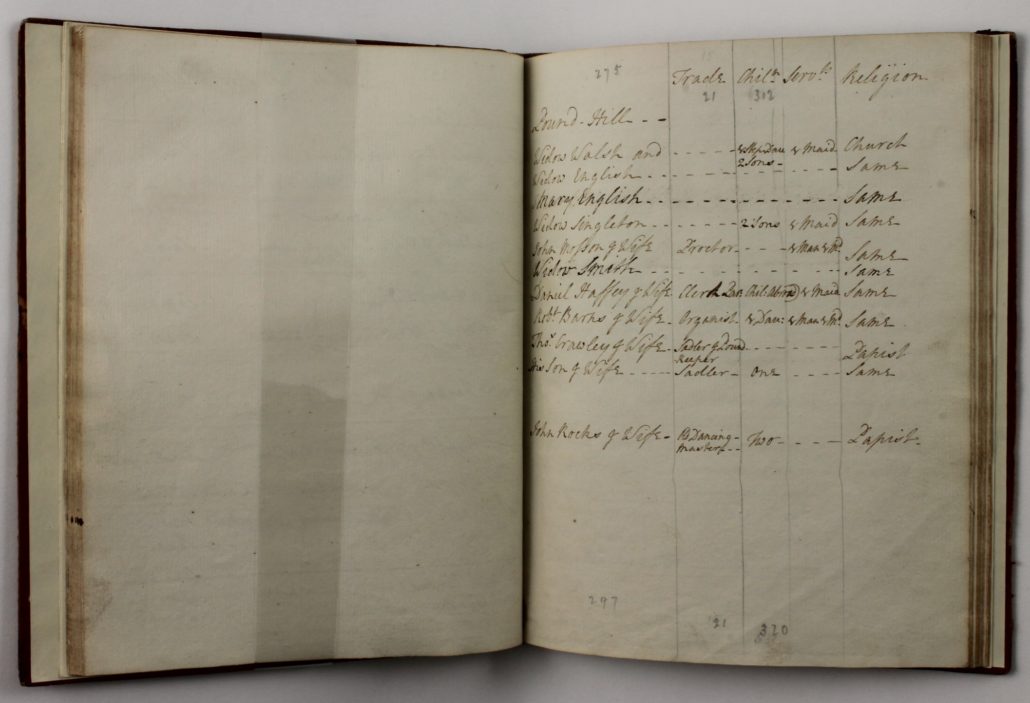 275 Trade Chiln. Servts. Religion
21 312
Pound-Hill - -
Widow Walsh and - - - - - & Stp.Dau & Maid Church
Widow English - - - 2 Sons - - - - - Same
Mary English - - - - - - - - Same
Widow Singleton - - - - - - 2 Sons & Maid Same
John & Wife Proctor - - - - & Man & Md. Same
Widow Smith - - - - - - - - Same
Daniel Haffey & Wife Clerk Chil: Abroad & Maid Same
Robt. Barns & Wife - Organist - & Dau: & Man & Md. Same
Thos. Crawley & Wife - Sadler & Pound - - - - - Papist
Keeper
His Son & Wife - - - - Sadler - One - - - - Same
John Rocks & Wife - Dancing - Two - - - - Papist -
Master - -
297
21 320